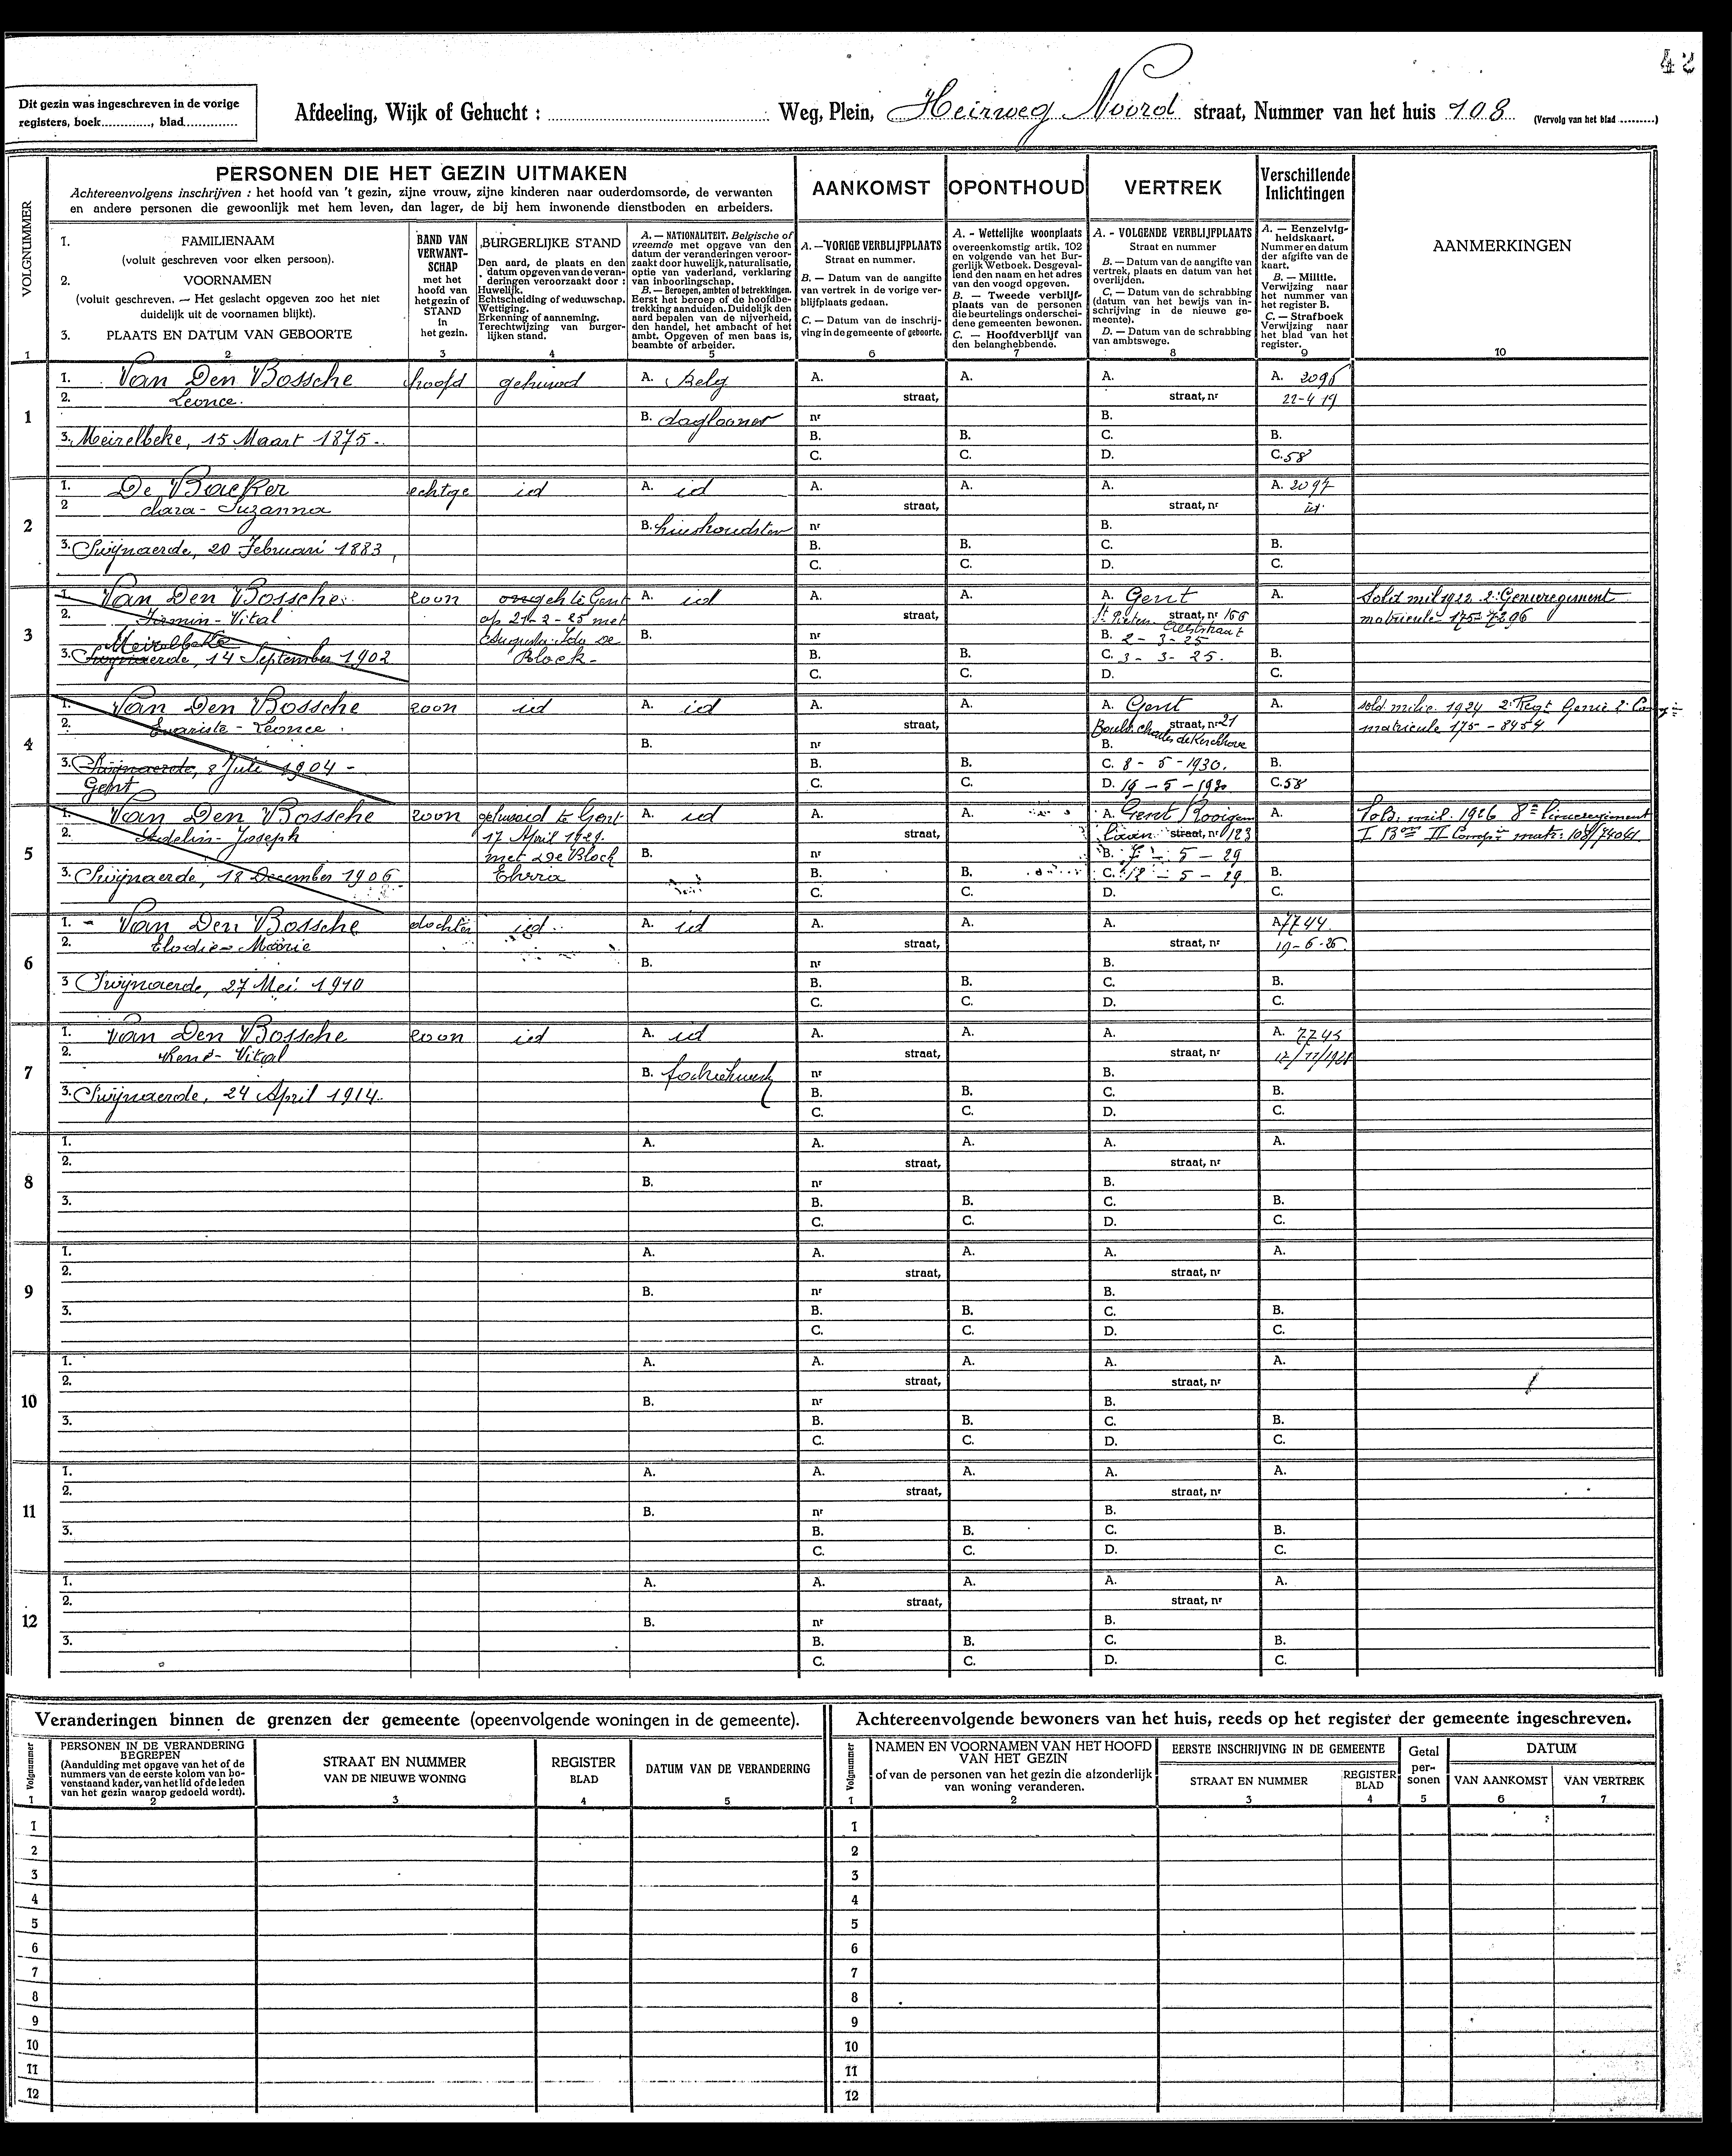 42
Dit gezin was ingeschreven in de vorige
registers, boek............, blad..............
Afdeeling, Wijk of Gehucht : ........................ Weg, Plein, Heirweg Noord straat, Nummer van het huis 108 (Vervolg van het blad .........)
VOLGNUMMER
PERSONEN DIE HET GEZIN UITMAKEN
Achtereenvolgens inschrijven : het hoofd van 't gezin, zijne vrouw, zijne kinderen naar ouderdomsorde, de verwanten
en andere personen die gewoonlijk met hem leven, dan lager, de bij hem inwonende dienstboden en arbeiders.
AANKOMST
OPONTHOUD
VERTREK
Verschillende
Inlichtingen
1. FAMILIENAAM
(voluit geschreven voor elken persoon).
2. VOORNAMEN
(voluit geschreven. — Het geslacht opgeven zoo het niet
duidelijk uit de voornamen blijkt).
3. PLAATS EN DATUM VAN GEBOORTE
BAND VAN
VERWANT-
SCHAP
met het
hoofd van
het gezin of
STAND
in
het gezin.
BURGERLIJKE STAND
Den aard, de plaats en den
datum opgeven van de veran-
deringen veroorzaakt door :
Huwelijk.
Echtscheiding of weduwschap.
Wettiging.
Erkenning of aanneming.
Terechtwijzing van burger-
lijken stand.
A. — NATIONALITEIT. Belgische of
vreemde met opgave van den
datum der veranderingen veroor-
zaakt door huwelijk, naturalisatie,
optie van vaderland, verklaring
van inboorlingschap.
B. — Beroepen, ambten of betrekkingen.
Eerst het beroep of de hoofdbe-
trekking aanduiden. Duidelijk den
aard bepalen van de nijverheid,
den handel, het ambacht of het
ambt. Opgeven of men baas is,
beambte of arbeider.
A. — VORIGE VERBLIJFPLAATS
Straat en nummer.
B. — Datum van de aangifte
van vertrek in de vorige ver-
blijfplaats gedaan.
C. — Datum van de inschrij-
ving in de gemeente of geboorte.
A. - Wettelijke woonplaats
overeenkomstig artik. 102
en volgende van het Bur-
gerlijk Wetboek. Desgeval-
lend den naam en het adres
van den voogd opgeven.
B. — Tweede verblijf-
plaats van de personen
die beurtelings onderschei-
dene gemeenten bewonen.
C. — Hoofdverblijf van
den belanghebbende.
A. - VOLGENDE VERBLIJFPLAATS
Straat en nummer
B. — Datum van de aangifte van
vertrek, plaats en datum van het
overlijden.
C. — Datum van de schrabbing
(datum van het bewijs van in-
schrijving in de nieuwe ge-
meente).
D. — Datum van de schrabbing
van ambtswege.
A. — Eenzelvig-
heidskaart.
Nummer en datum
der afgifte van de
kaart.
B. — Militie.
Verwijzing naar
het nummer van
het register B.
C. — Strafboek
Verwijzing naar
het blad van het
register.
AANMERKINGEN
1 2 3 4 5 6 7 8 9 10
1
1. Van Den Bossche hoofd gehuwd A. Belg A. A. A. A. 2096
2. Leonce. straat, straat, nr 22-4 19
B. daglooner nr B.
3. Meirelbeke, 15 Maart 1875 - B. B. C. B.
C. C. D. C. 58
2
1. De Backer echtge id A. id A. A. A. A. 2097
2 clara - Suzanna straat, straat, nr id.
B. huishoudster nr B.
3. Swijnaerde, 20 Februari 1883, B. B. C. B.
C. C. D. C.
3
1. Van Den Bossche zoon ongeh te Gent A. id A. A. A. Gent A. Sold mil 1922. 2e Genieregiment
2. Firmin - Vital op 21-2-25 met straat, St Pieters Aalststraat straat, nr 166 matricule 175-7296
Meirelbeke Augusta Ida De B. nr B. 2-3-25
3. Swijnaerde, 14 September 1902 Block - B. B. C. 3-3-25. B.
C. C. D. C.
4
1. Van Den Bossche zoon id A. id A. A. A. Gent A. sold milic. 1924 2e Regt Genie 2e Comp
2. Evariste - Leonce. straat, straat, nr 21 matricule 175 - 8454
Boulv. charles de Kerchhove
B. nr B.
3. Swijnaerde, 8 Juli 1904 - B. B. C. 8-5-1930. B.
Gent C. C. D. 19-5-1930 C. 58
5
1. Van Den Bossche zoon gehuwd te Gent A. id A. A. A. Gent Rooigem A. Sold. mil. 1926 8e Linieregiment
2. Adelin - Joseph 17 April 1929. straat, laan straat, nr 123
met De Block B. nr B. 7-5-29
3. Swijnaerde, 18 December 1906 B. B. C. 18-5-29 B.
C. C. D. C.
6
1. - Van Den Bossche dochter id A. id A. A. A. A. 7744
2. Elodie - Marie straat, straat, nr 19-6-25
B. nr B.
3 Swijnaerde, 27 Mei 1910 B. B. C. B.
C. C. D. C.
7
1. Van Den Bossche zoon id A. id A. A. A. A. 7745
2. René - Vital straat, straat, nr
B. nr B.
3. Swijnaerde, 24 April 1914. B. B. C. B.
C. C. D. C.
8
1. A. A. A. A. A.
2. straat, straat, nr
B. nr B.
3. B. B. C. B.
C. C. D. C.
9
1. A. A. A. A. A.
2. straat, straat, nr
B. nr B.
3. B. B. C. B.
C. C. D. C.
10
1. A. A. A. A. A.
2. straat, straat, nr
B. nr B.
3. B. B. C. B.
C. C. D. C.
11
1. A. A. A. A. A.
2. straat, straat, nr
B. nr B.
3. B. B. C. B.
C. C. D. C.
12
1. A. A. A. A. A.
2. straat, straat, nr
B. nr B.
3. B. B. C. B.
C. C. D. C.
Veranderingen binnen de grenzen der gemeente (opeenvolgende woningen in de gemeente).
Volgnummer
PERSONEN IN DE VERANDERING
BEGREPEN
(Aanduiding met opgave van het of de
nummers van de eerste kolom van bo-
venstaand kader, van het lid of de leden
van het gezin waarop gedoeld wordt).
STRAAT EN NUMMER
VAN DE NIEUWE WONING
REGISTER
BLAD
DATUM VAN DE VERANDERING
1 2 3 4 5
1
2
3
4
5
6
7
8
9
10
11
12
Achtereenvolgende bewoners van het huis, reeds op het register der gemeente ingeschreven.
Volgnummer
NAMEN EN VOORNAMEN VAN HET HOOFD
VAN HET GEZIN
of van de personen van het gezin die afzonderlijk
van woning veranderen.
EERSTE INSCHRIJVING IN DE GEMEENTE
STRAAT EN NUMMER
REGISTER
BLAD
Getal
per-
sonen
DATUM
VAN AANKOMST
VAN VERTREK
1 2 3 4 5 6 7
1
2
3
4
5
6
7
8
9
10
11
12